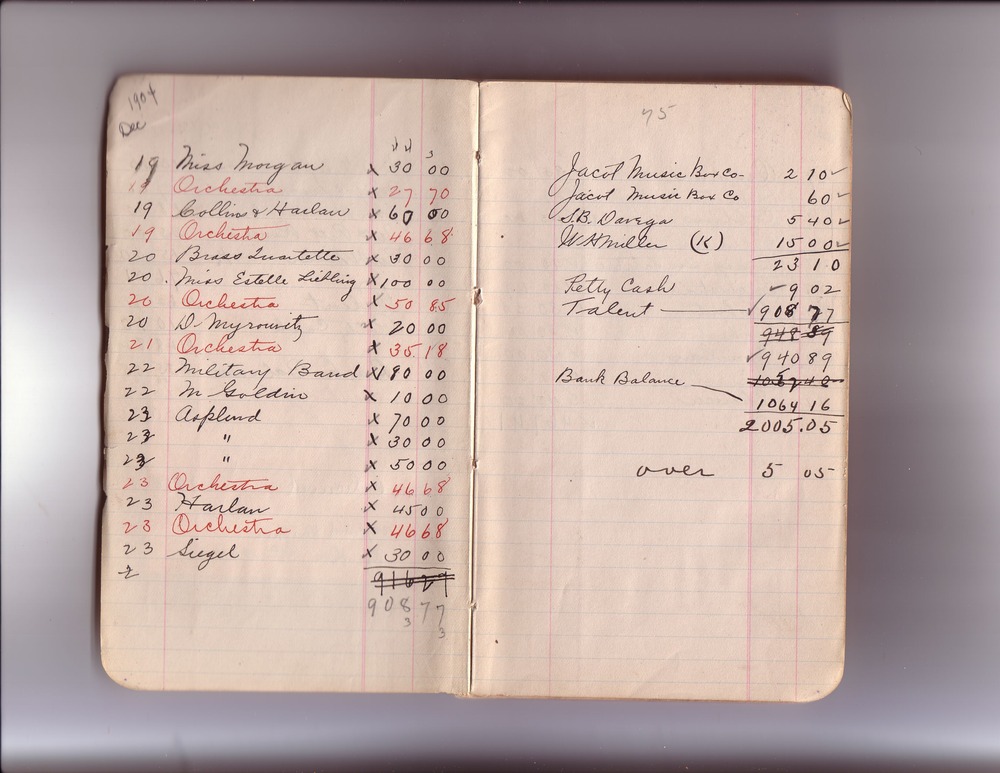 1904
Dec
19 Miss Morgan x 30 00
19 Orchestra x 27 70
19 Collins & Harlan x 60 00
19 Orchestra x 46 68
20 Brass Quartette x 30 00
20 Miss Estelle Liebling x 100 00
20 Orchestra x 50 85
20 D. Myrovitz x 20 00
21 Orchestra x 35 18
22 Military Band x 180 00
22 M Goldin x 10 00
23 Asplund x 70 00
23 " x 30 00
23 " x 50 00
23 Orchestra x 46 68
23 Harlan x 45 00
23 Orchestra x 46 68
23 Siegel x 30 00
2
916 29
908 77
3 3
75
Jacot Music Box Co- 2 10
Jacot Music Box Co 60
S.B. Davega 5 40
W H Miller (K) 15 00
23 10
Petty Cash 9 02
Talent 908 77
948 89
940 89
Bank Balance
1064 16
2005.05
over 5 05